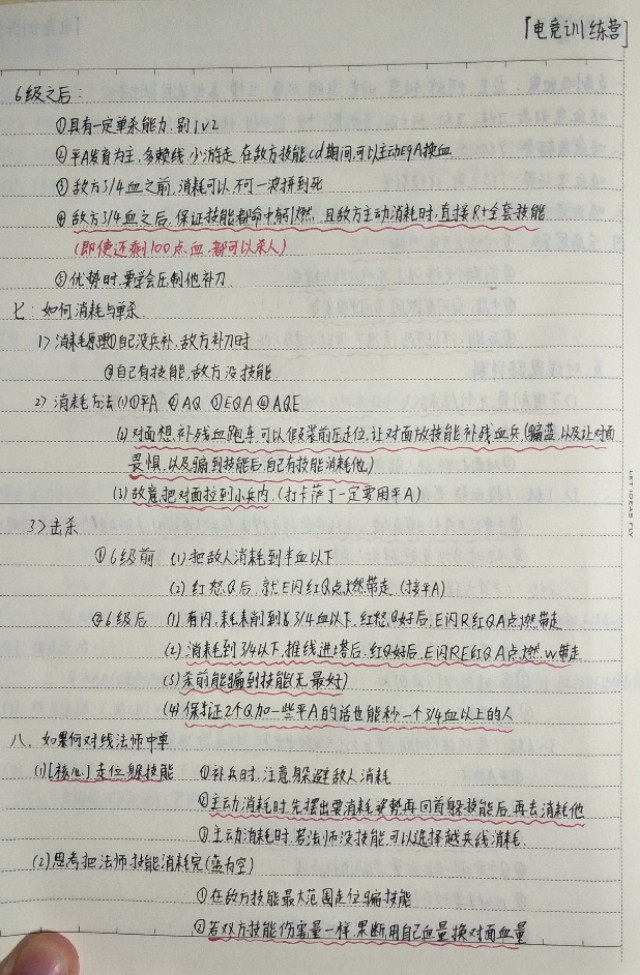 「电竞训练营」
6级之后:
①具有一定单杀能力,别1v2
②平A发育为主,多赖线,小游走,在敌方技能cd期间,可以主动EQA换血
③敌方3/4血之前,消耗可以,不可一波拼到死
④敌方3/4血之后,保证技能都命中有引燃,且敌方主动消耗时,直接R+全套技能
(即使还剩100点血,都可以杀人)
⑤优势时,要学会压制他补刀
七:如何消耗与单杀
1>消耗原理①自己没兵补,敌方补刀时
②自己有技能,敌方没技能
2>消耗方法(1)①平A ②AQ ③EQA ④AQE
(2)对面想补残血跑车,可以假装前压走位,让对面放技能补残血兵(骗蓝,以及让对面
畏惧,以及骗到技能后,自己有技能消耗他)
(3)故意把对面拉到小兵内.(打卡萨丁一定要用平A)
3>击杀
①6级前 (1)把敌人消耗到半血以下
(2)红怒Q后,就E闪红Q点燃带走.(接平A)
②6级后 (1)有闪,耗到3/4血以下,红怒Q好后,E闪R红QA点燃带走
(2)消耗到3/4以下,推线进塔后,红Q好后,E闪RE红QA点燃.w带走
(3)杀前能骗到技能(无最好)
(4)保证2个Q,加一些平A的话也能秒一个3/4血以上的人
八.如何对线法师中单
(1)[核心]走位躲技能 ①补兵时,注意躲避敌人消耗
②主动消耗时,先摆出要消耗姿势再回首躲技能后,再去消耗他
③主动消耗时,若法师没技能,可以选择越兵线消耗.
(2)思考把法师技能消耗完(蓝为空)
①在敌方技能最大范围走位骗技能
②若双方技能伤害量一样,果断用自己血量换对面血量
LET IDEAS FLY